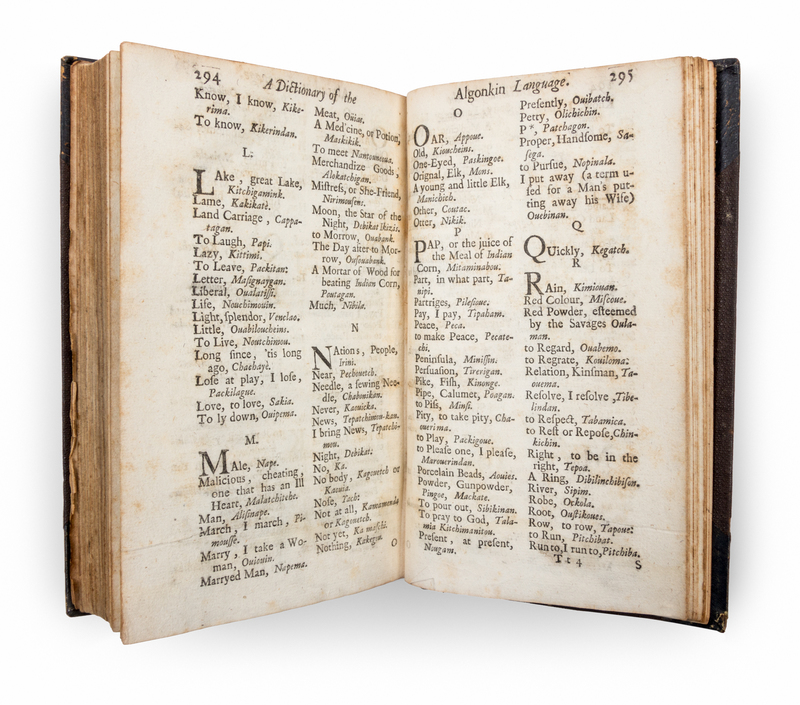 294
A Dictionary of the
Know, I know, Kike-
rima.
To know, Kikerindan.
L.
LAke, great Lake,
Kitchigamink.
Lame, Kakikatè.
Land Carriage, Cappa-
tagan.
To Laugh, Papi.
Lazy, Kittimi.
To Leave, Packitan:
Letter, Masignaygan.
Liberal, Oualatissi.
Life, Nouchimouin.
Light, splendor, Vendao.
Little, Ouabiloucheins.
To Live, Noutchimou.
Long since, 'tis long
ago, Chachayè.
Lose at play, I lose,
Packilague.
Love, to love, Sakia.
To ly down, Ouipema.
M.
MAle, Nape.
Malicious, cheating,
one that has an Ill
Heart, Malatchitehe.
Man, Alisinape.
March, I march, Pi-
mousse.
Marry, I take a Wo-
man, Ouiouin.
Marryed Man, Napema.
Meat, Oüias.
A Med'cine, or Potion,
Maskikik.
To meet Nantouneoua.
Merchandize Goods,
Alokatchigan.
Mistress, or She-Friend,
Nirimousens.
Moon, the Star of the
Night, Debikat Ikizis.
to Morrow, Ouabank.
The Day after to Mor-
row, Ousouabank.
A Mortar of Wood for
beating Indian Corn,
Poutagan.
Much, Nibila.
N
NAtions, People,
Irini.
Near, Pechouetch.
Needle, a sewing Nee-
dle, Chabonikan.
Never, Kaouicka.
News, Tepatchimou-kan.
I bring News, Tepatchi-
mou.
Night, Debikat:
No, Ka.
No body, Kagouetch or
Kaouia.
Nose, Yach:
Not at all, Kamamenda
or Kagouetch.
Not yet, Ka maschi.
Nothing, Kakegou.
O
Algonkin Language.
295
O
OAR, Appoue.
Old, Kioucheins.
One-Eyed, Paskingoe.
Orignal, Elk, Mons.
A young and little Elk,
Manichich.
Other, Coutac.
Otter, Nikik.
P
PAP, or the juice of
the Meal of Indian
Corn, Mitaminabou.
Part, in what part, Ta-
nipi.
Partriges, Pilesioue.
Pay, I pay, Tipaham.
Peace, Peca.
to make Peace, Pecate-
chi.
Peninsula, Minissin.
Persuasion, Tirerigan.
Pike, Fish, Kinonge.
Pipe, Calumet, Poagan.
to Piss, Minsi.
Pity, to take pity, Cha-
ouerima.
to Play, Packigoue.
to Please one, I please,
Marouerindan.
Porcelain Beads, Aouies.
Powder, Gunpowder,
Pingoe, Mackate.
To pour out, Sibikinan.
To pray to God, Tala-
mia Kitchimanitou.
Present, at present,
Nougam.
Presently, Ouibatch.
Petty, Olichichin.
P *, Patchagon.
Proper, Handsome, Sa-
sega.
to Pursue, Nopinala.
I put away (a term u-
sed for a Man's put-
ting away his Wife)
Ouebinan.
Q
QUickly, Kegatch.
R
RAin, Kimiouan.
Red Colour, Miscoue.
Red Powder, esteemed
by the Savages Oula-
man.
to Regard, Ouabemo.
to Regrate, Kouiloma:
Relation, Kinsman, Ta-
ouema.
Resolve, I resolve, Tibe-
lindan.
to Respect, Tabamica.
to Rest or Repose, Chin-
kichin.
Right, to be in the
right, Tepoa.
A Ring, Dibilinchibison.
River, Sipim.
Robe, Ockola.
Root, Oustikoues.
Row, to row, Tapoue:
to Run, Pitchibat.
Run to, I run to, Pitchiba.
Tt 4
S